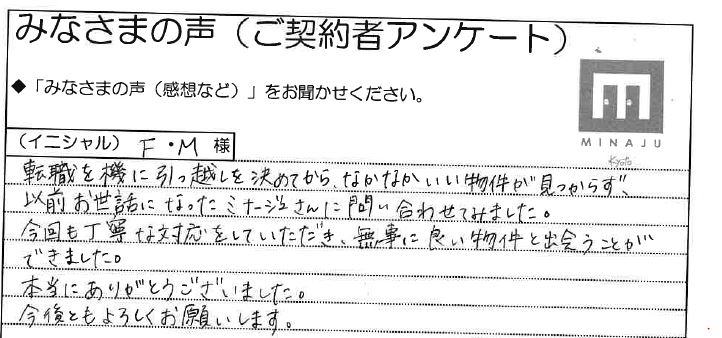 みなさまの声（ご契約者アンケート）
◆「みなさまの声（感想など）」をお聞かせください。
MINAJU
Kyoto
（イニシャル） F・M 様
転職を機に引っ越しを決めてから、なかなかいい物件が見つからず、
以前お世話になったミナージュさんに問い合わせてみました。
今回も丁寧な対応をしていただき、無事に良い物件と出会うことが
できました。
本当にありがとうございました。
今後ともよろしくお願いします。